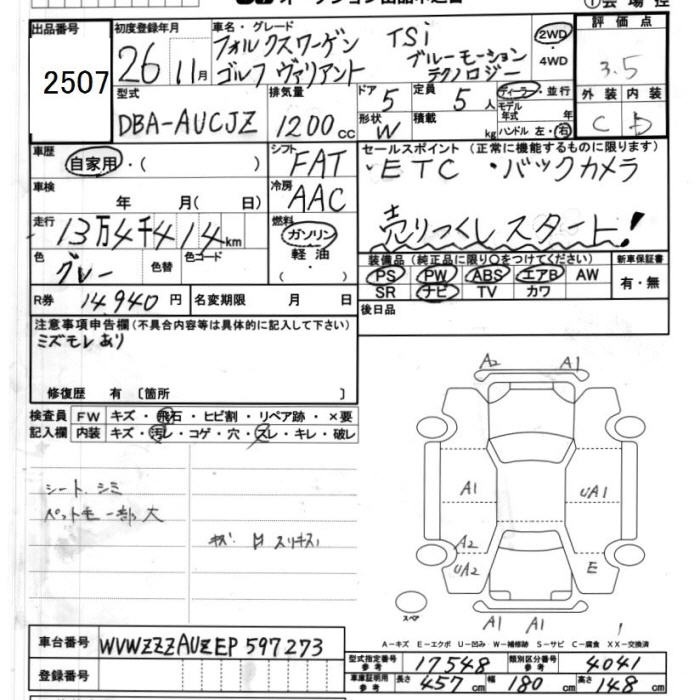 オークション出品申込書
①会場控
出品番号
2507
初度登録年月
26 11月
車名・グレード
フォルクスワーゲン TSi
ゴルフ ヴァリアント ブルーモーション
テクノロジー
2WD
・
4WD
評価点
3.5
外装 内装
C D
型式
DBA-AUCJZ
排気量
1200 cc
ドア 5
形状 W
定員 5 人
積載 kg
ディーラー・並行
モデル年式 年
ハンドル 左・右
車歴
自家用・( )
シフト
FAT
セールスポイント (正常に機能するものに限ります)
・ETC ・バックカメラ
売りつくしスタート!
車検
年 月( 日)
冷房
AAC
走行
13万4千414km
燃料
ガソリン
軽油
・( )
色
グレー
色替
色コード
装備品(純正品に限り○をつけてください)
新車保証書
PS PW ABS エアB AW
SR ナビ TV カワ
有・無
R券 14,940 円
名変期限 月 日
後日品
注意事項申告欄(不具合内容等は具体的に記入して下さい)
ミズモレあり
修復歴 有 〔箇所 〕
検査員 FW キズ・飛石・ヒビ割・リペア跡・×要
記入欄 内装 キズ・汚レ・コゲ・穴・スレ・キレ・破レ
シート、シミ
ペット毛一部大
キズ
スリキズ
A2 A1
A1 UA1
A2
UA2 E
スペア
A1 A1
A-キズ E-エクボ U-凹み W-補修跡 S-サビ C-腐食 XX-交換済
車台番号 WVWZZZAUZEP597273
登録番号
型式指定番号 参考 17548
類別区分番号 参考 4041
車庫証明用 参考 長さ 457 cm 幅 180 cm 高さ 148 cm